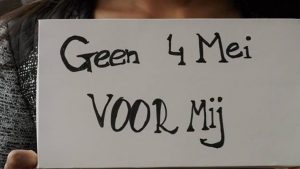 Geen 4 Mei
VOOR Mij